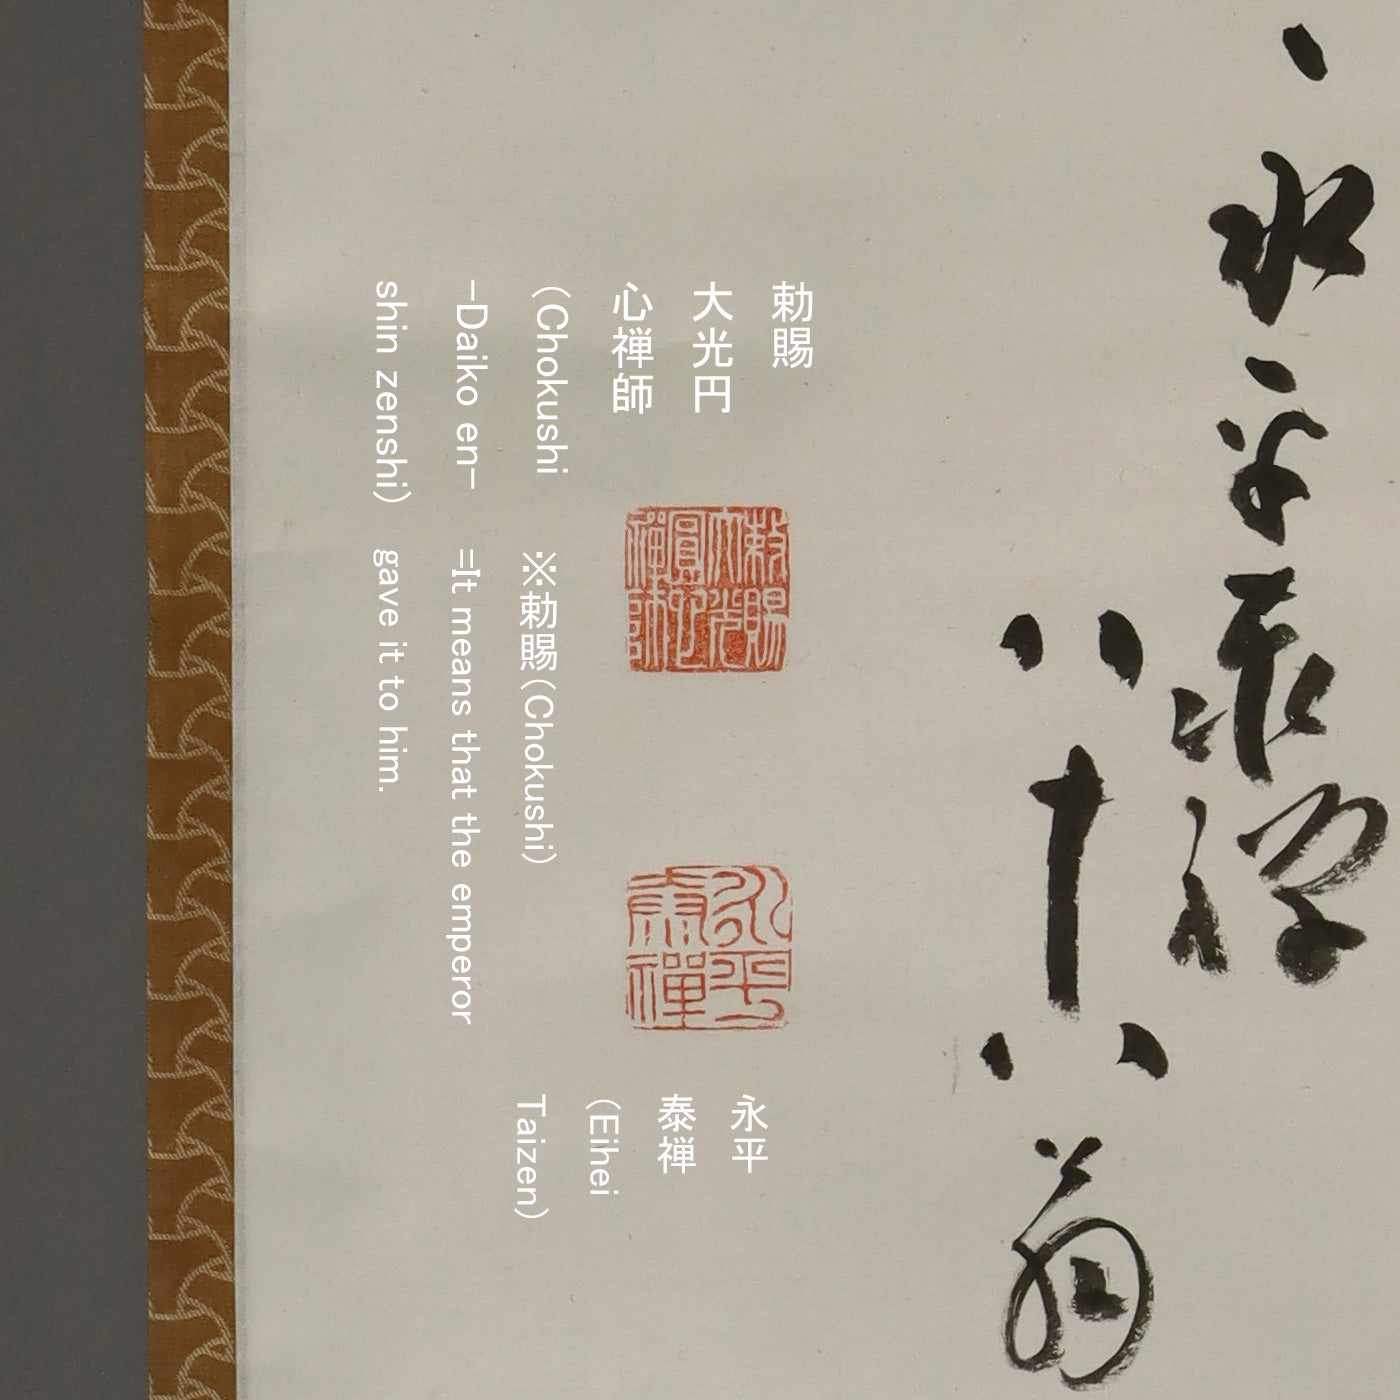 永平泰禅
八十八翁
勅賜
大光円
心禅師
(Chokushi
-Daiko en-
shin zenshi)
敕賜
大光
圓心
禪師
※勅賜(Chokushi)
=It means that the emperor
gave it to him.
永平
泰禪
永平
泰禅
(Eihei
Taizen)